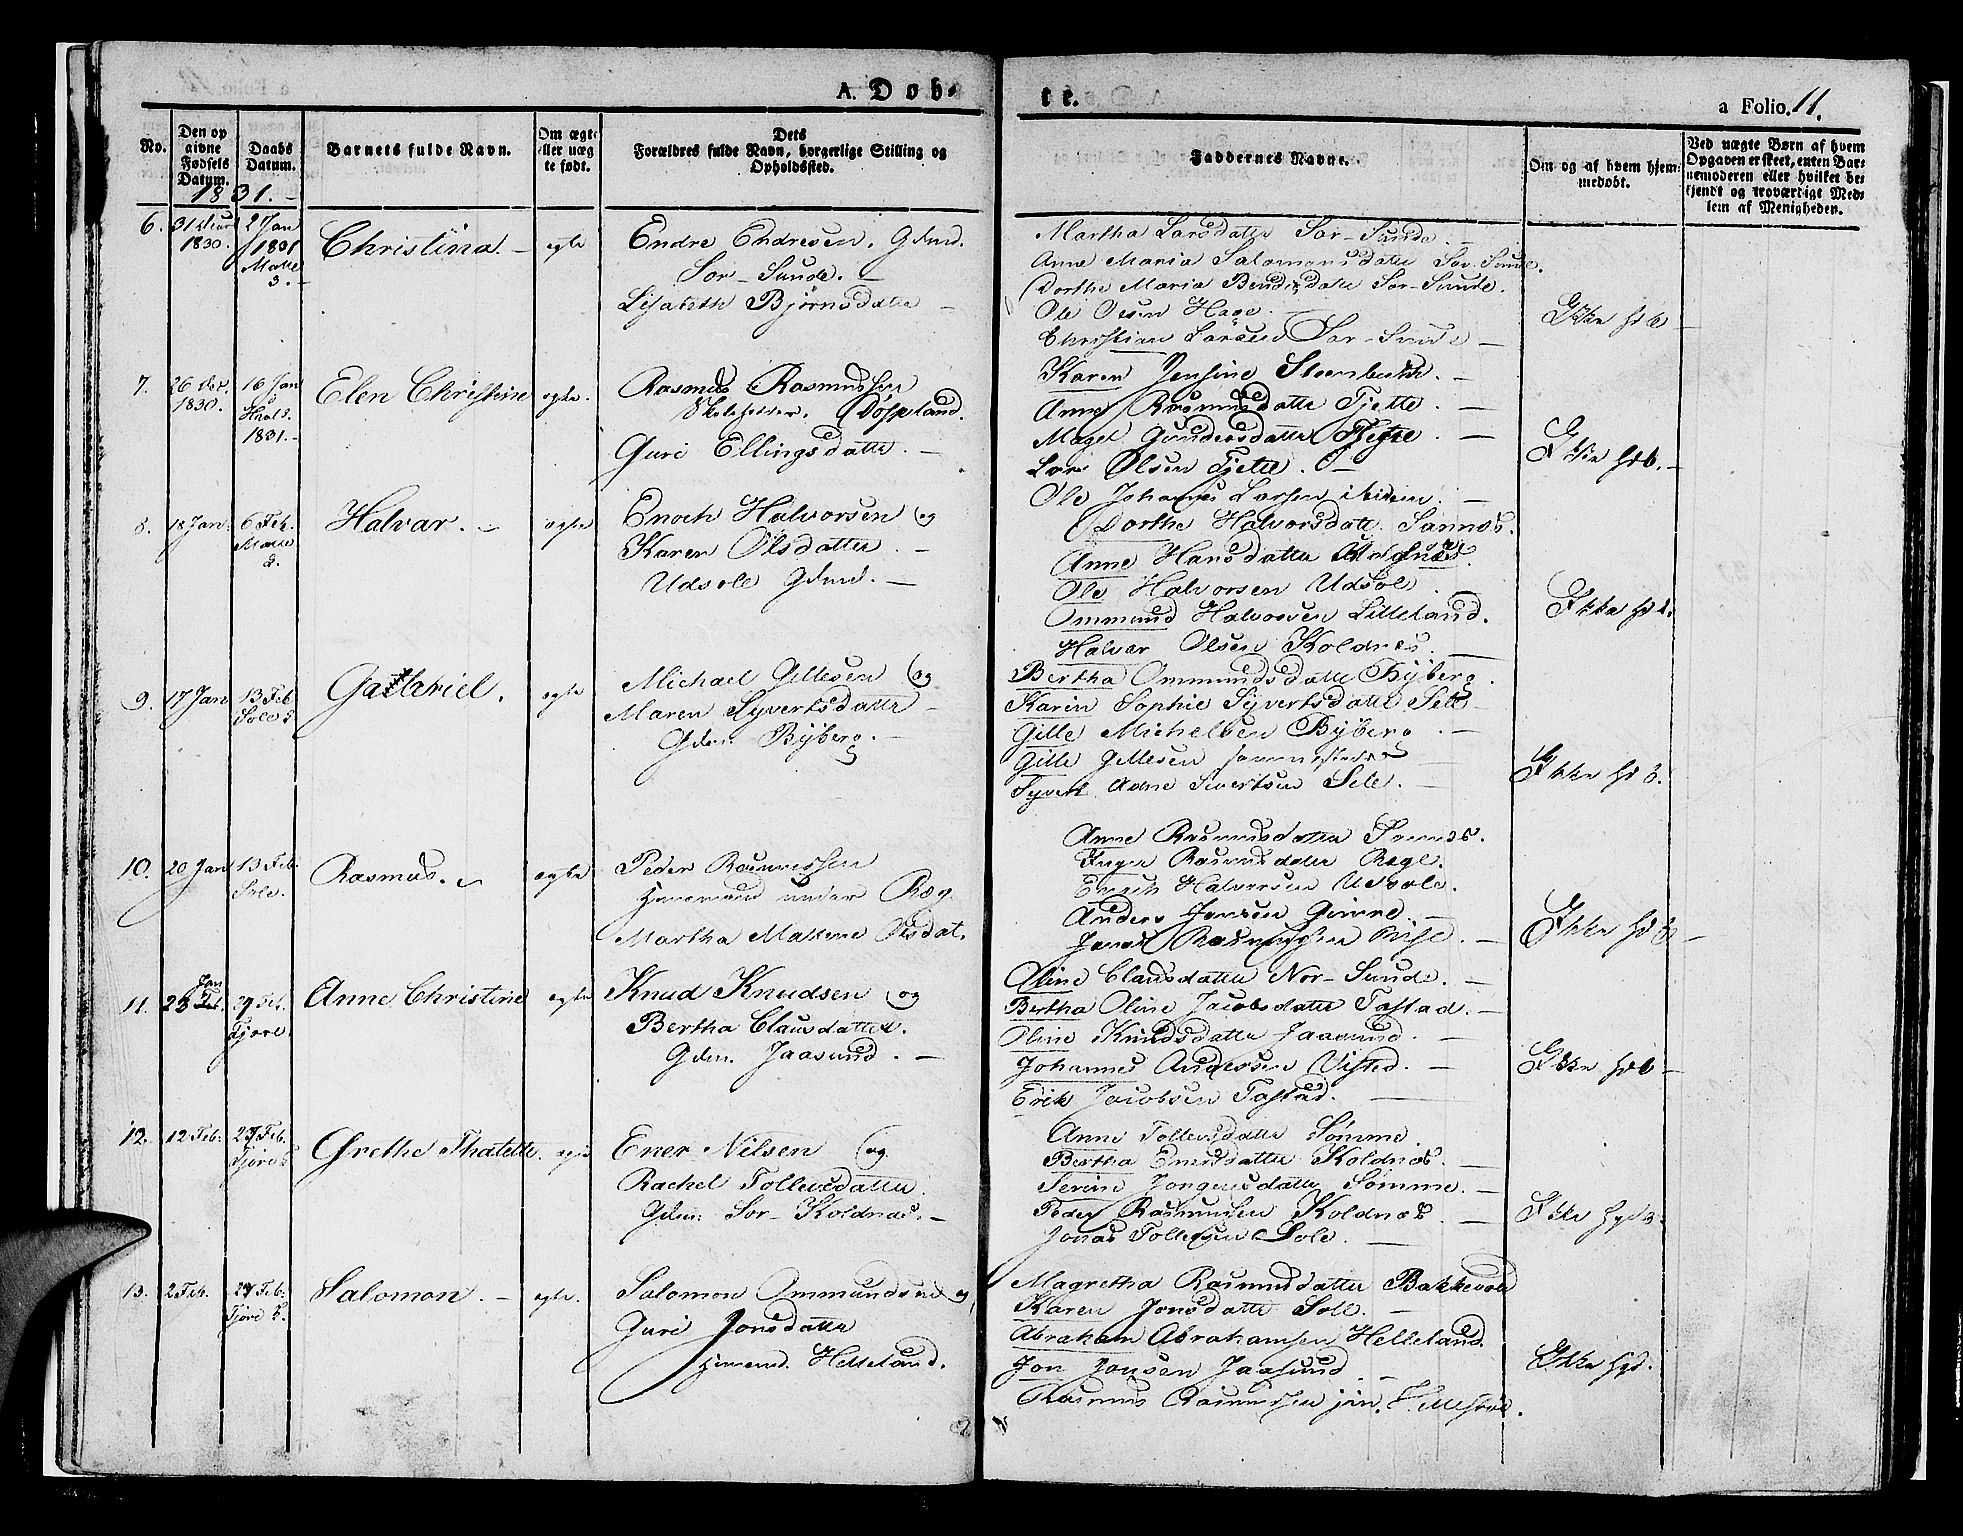 A. Døb-
te.
a Folio. 11.
No.
Den op
givne
Fødsels
Datum.
Daabs
Datum.
Barnets fulde Navn.
Om ægte
eller uæg
te født.
Dets
Forældres fulde Navn, borgerlige Stilling og
Opholdssted.
Faddernes Navne.
Om og af hvem hjem-
medøbt.
Ved uægte Børn af hvem
Opgaven er skeet, enten Bar-
nemoderen eller hvilket be-
kjendt og troværdigt Med-
lem af Menigheden.
1831.
6.
1830.
2 Jan
1831
3.
Christina.
egte
Endre Endresen. Gdmd.
Sør-Sunde.
Lisabeth Bjørnsdatter
Martha Larsdatter Sør-Sunde.
Anne Maria Salomonsdatter Sør-Sunde.
Dorthe Maria Sør-Sunde.
Ole Olsen Hage.
Christian Larsen Sør-Sunde
Ikke hdb
7.
26 Dec.
1830.
16 Jan
1831.
Elen Christine
egte.
Rasmus Rasmussen
Skoleholder.
Guri Ellingsdatter.
Karen Jensine
Anne Rasmusdatter Tjette.
Maget Gundersdatter
Lars Olsen Tjette.
Ole Johannes Larsen ibidem.
Ikke hdb.
8.
18 Jan.
6 Feb.
Halvar.
egte
Enoch Halvorsen og
Karen Olsdatter
Udsole Gdmd.
Dorthe Halvorsdatt. Sannes.
Anne Hansdatter
Ole Halvorsen Udsole
Ommund Halvorsen Lilleland.
Halvar Olsen Koldnes.
Ikke hdb.
9.
17 Jan
13 Feb
Sole
Gabriel.
egte
Michael Gillesen og
Maren Syvertsdatter
Gdm. Byberg.
Bertha Ommundsdatte Byberg.
Karin Sophie Syvertsdatt Sele
Gille Michelsen Byberg
Gille Gillesen sammesteds
Sivertsen Sele.
Ikke hdb.
10.
20 Jan
13 Feb
Sole.
Rasmus.
egte
Peder Rasmussen
Huusmand under Ræg.
Martha Malene Olsdat.
Anne Rasmusdatter Sannes.
Inger Rasmusdatter Rege.
Enoch Halvorsen Udsole.
Anders Jansen Gimre.
Jonas Rasmussen Rege.
Ikke hdb
11.
Jan
23 Feb.
27 Feb.
Tjore.
Anne Christine
egte
Knud Knudsen og
Bertha Clausdatter.
Gdm. Jaasund.
Oline Clausdatter Nor-Sunde.
Bertha Oline Jacobsdatter Tastad.
Oline Knudsdatter Jaasund.
Johannes Andersen Visted.
Erik Jacobsen Tastad.
Ikke hdb
12.
12 Feb.
27 Feb.
Grethe Thalette.
egte
Ener Nilsen og
Rachel Tollevsdatter.
Gdm. Sør-Koldnæs.
Anne Tollevsdatter Sømme.
Bertha Enersdatter Koldnæs.
Serine Sømme.
Peder Rasmussen Koldnæs
Jonas Tollevsen Sole.
13.
2 Feb.
27 Feb.
Salomon.
egte.
Salomon Ommundsen og
Guri Jonsdatter
Huusmd. Helleland.
Magretha Rasmusdatter Bakkevold
Karen Jonsdatter Sole.
Abraham Abrahamsen Helleland.
Jon Jonsen Jaasund
Rasmus Rasmussen jun.
Ikke